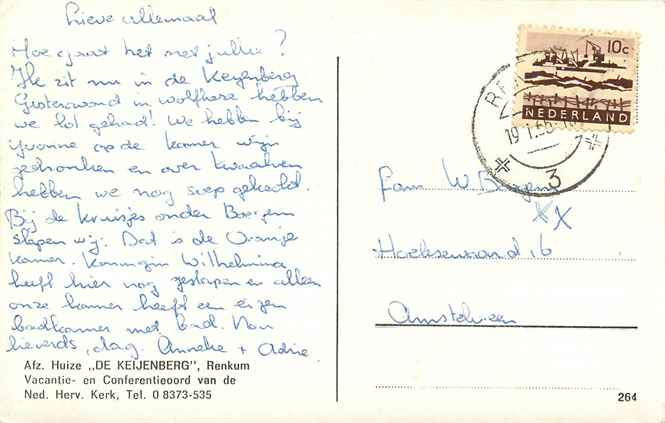 Lieve allemaal
Hoe gaat het met jullie?
Ik zit nu in de Keyenberg
Gisteravond in Wolfheze hebben
we lol gehad! We hebben bij
Yvonne op de kamer wijn
gedronken en over kwaalven
hebben we nog soep gekookt.
Bij de kruisjes onder Boogem
slapen wij. Dat is de Oranje
kamer. Koningin Wilhelmina
heeft hier nog geslapen en alleen
onze kamer heeft een eigen
badkamer met bad. Nou
lieverds, dag. Anneke + Adrie.
Afz. Huize „DE KEIJENBERG", Renkum
Vacantie- en Conferentieoord van de
Ned. Herv. Kerk, Tel. 0 8373-535
10c
NEDERLAND
RE
19 1.65
3
Fam W. Bergen
XX
Hoeksewaard 16
Amstelveen
264